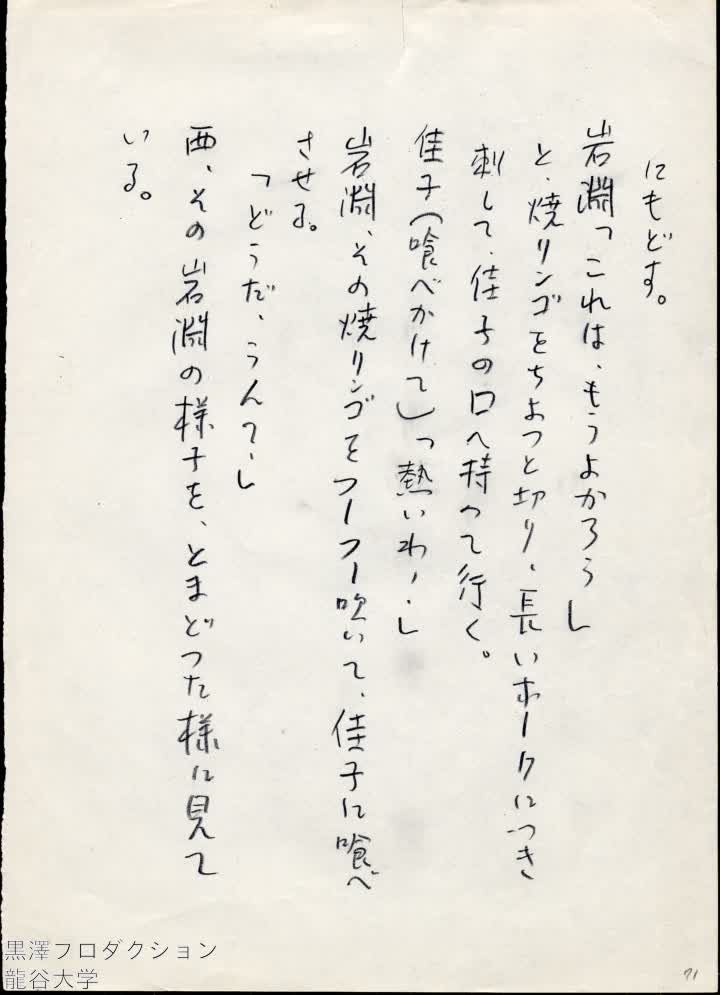 にもどす。
岩淵「これは、もうよかろう」
と、焼リンゴをちよつと切り、長いホークにつき
刺して、佳子の口へ持つて行く。
佳子（喰べかけて）「熱いわ！」
岩淵、その焼リンゴをフーフー吹いて、佳子に喰べ
させる。
「どうだ、うん？」
西、その岩淵の様子を、とまどつた様に見て
いる。
71
黒澤プロダクション
龍谷大学